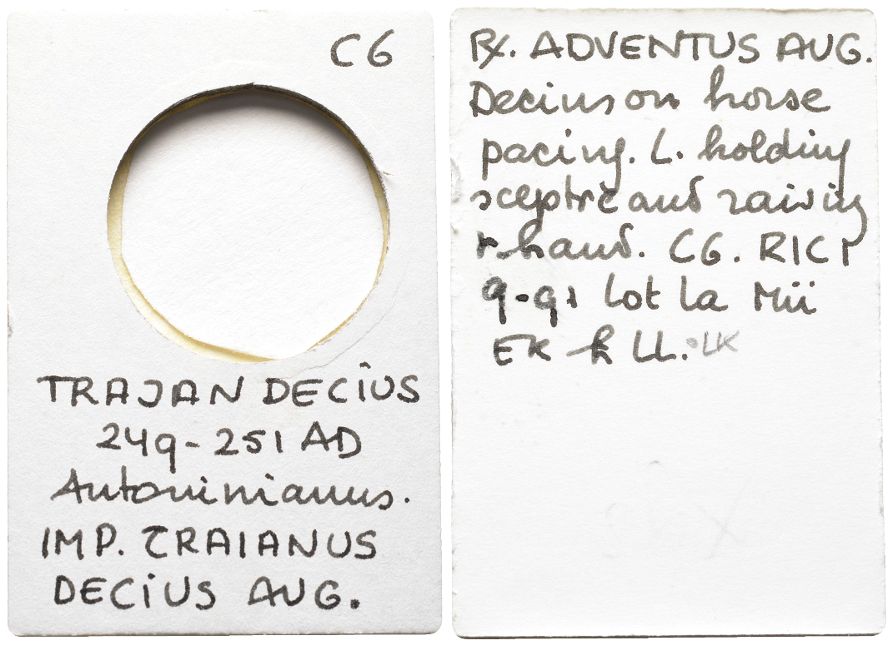 C6
TRAJAN DECIUS
249-251 AD
Antoninianus.
IMP. TRAIANUS
DECIUS AUG.
Rx. ADVENTUS AUG.
Decius on horse
pacing. L. holding
sceptre and raising
r. hand. C6. RIC
9-91 lot la
EK LL.